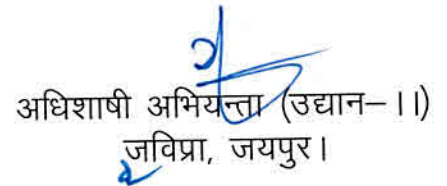 अधिशाषी अभियन्ता (उद्यान–।।)
जविप्रा, जयपुर।